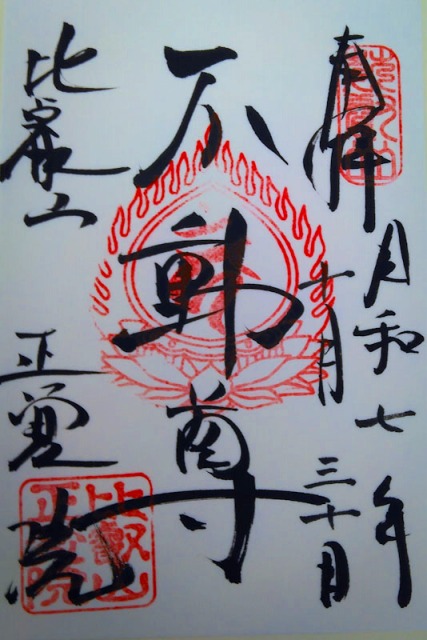 奉拝
令和七年
十一月三十日
不動尊
比叡山
正覚院
比叡山
正覚院